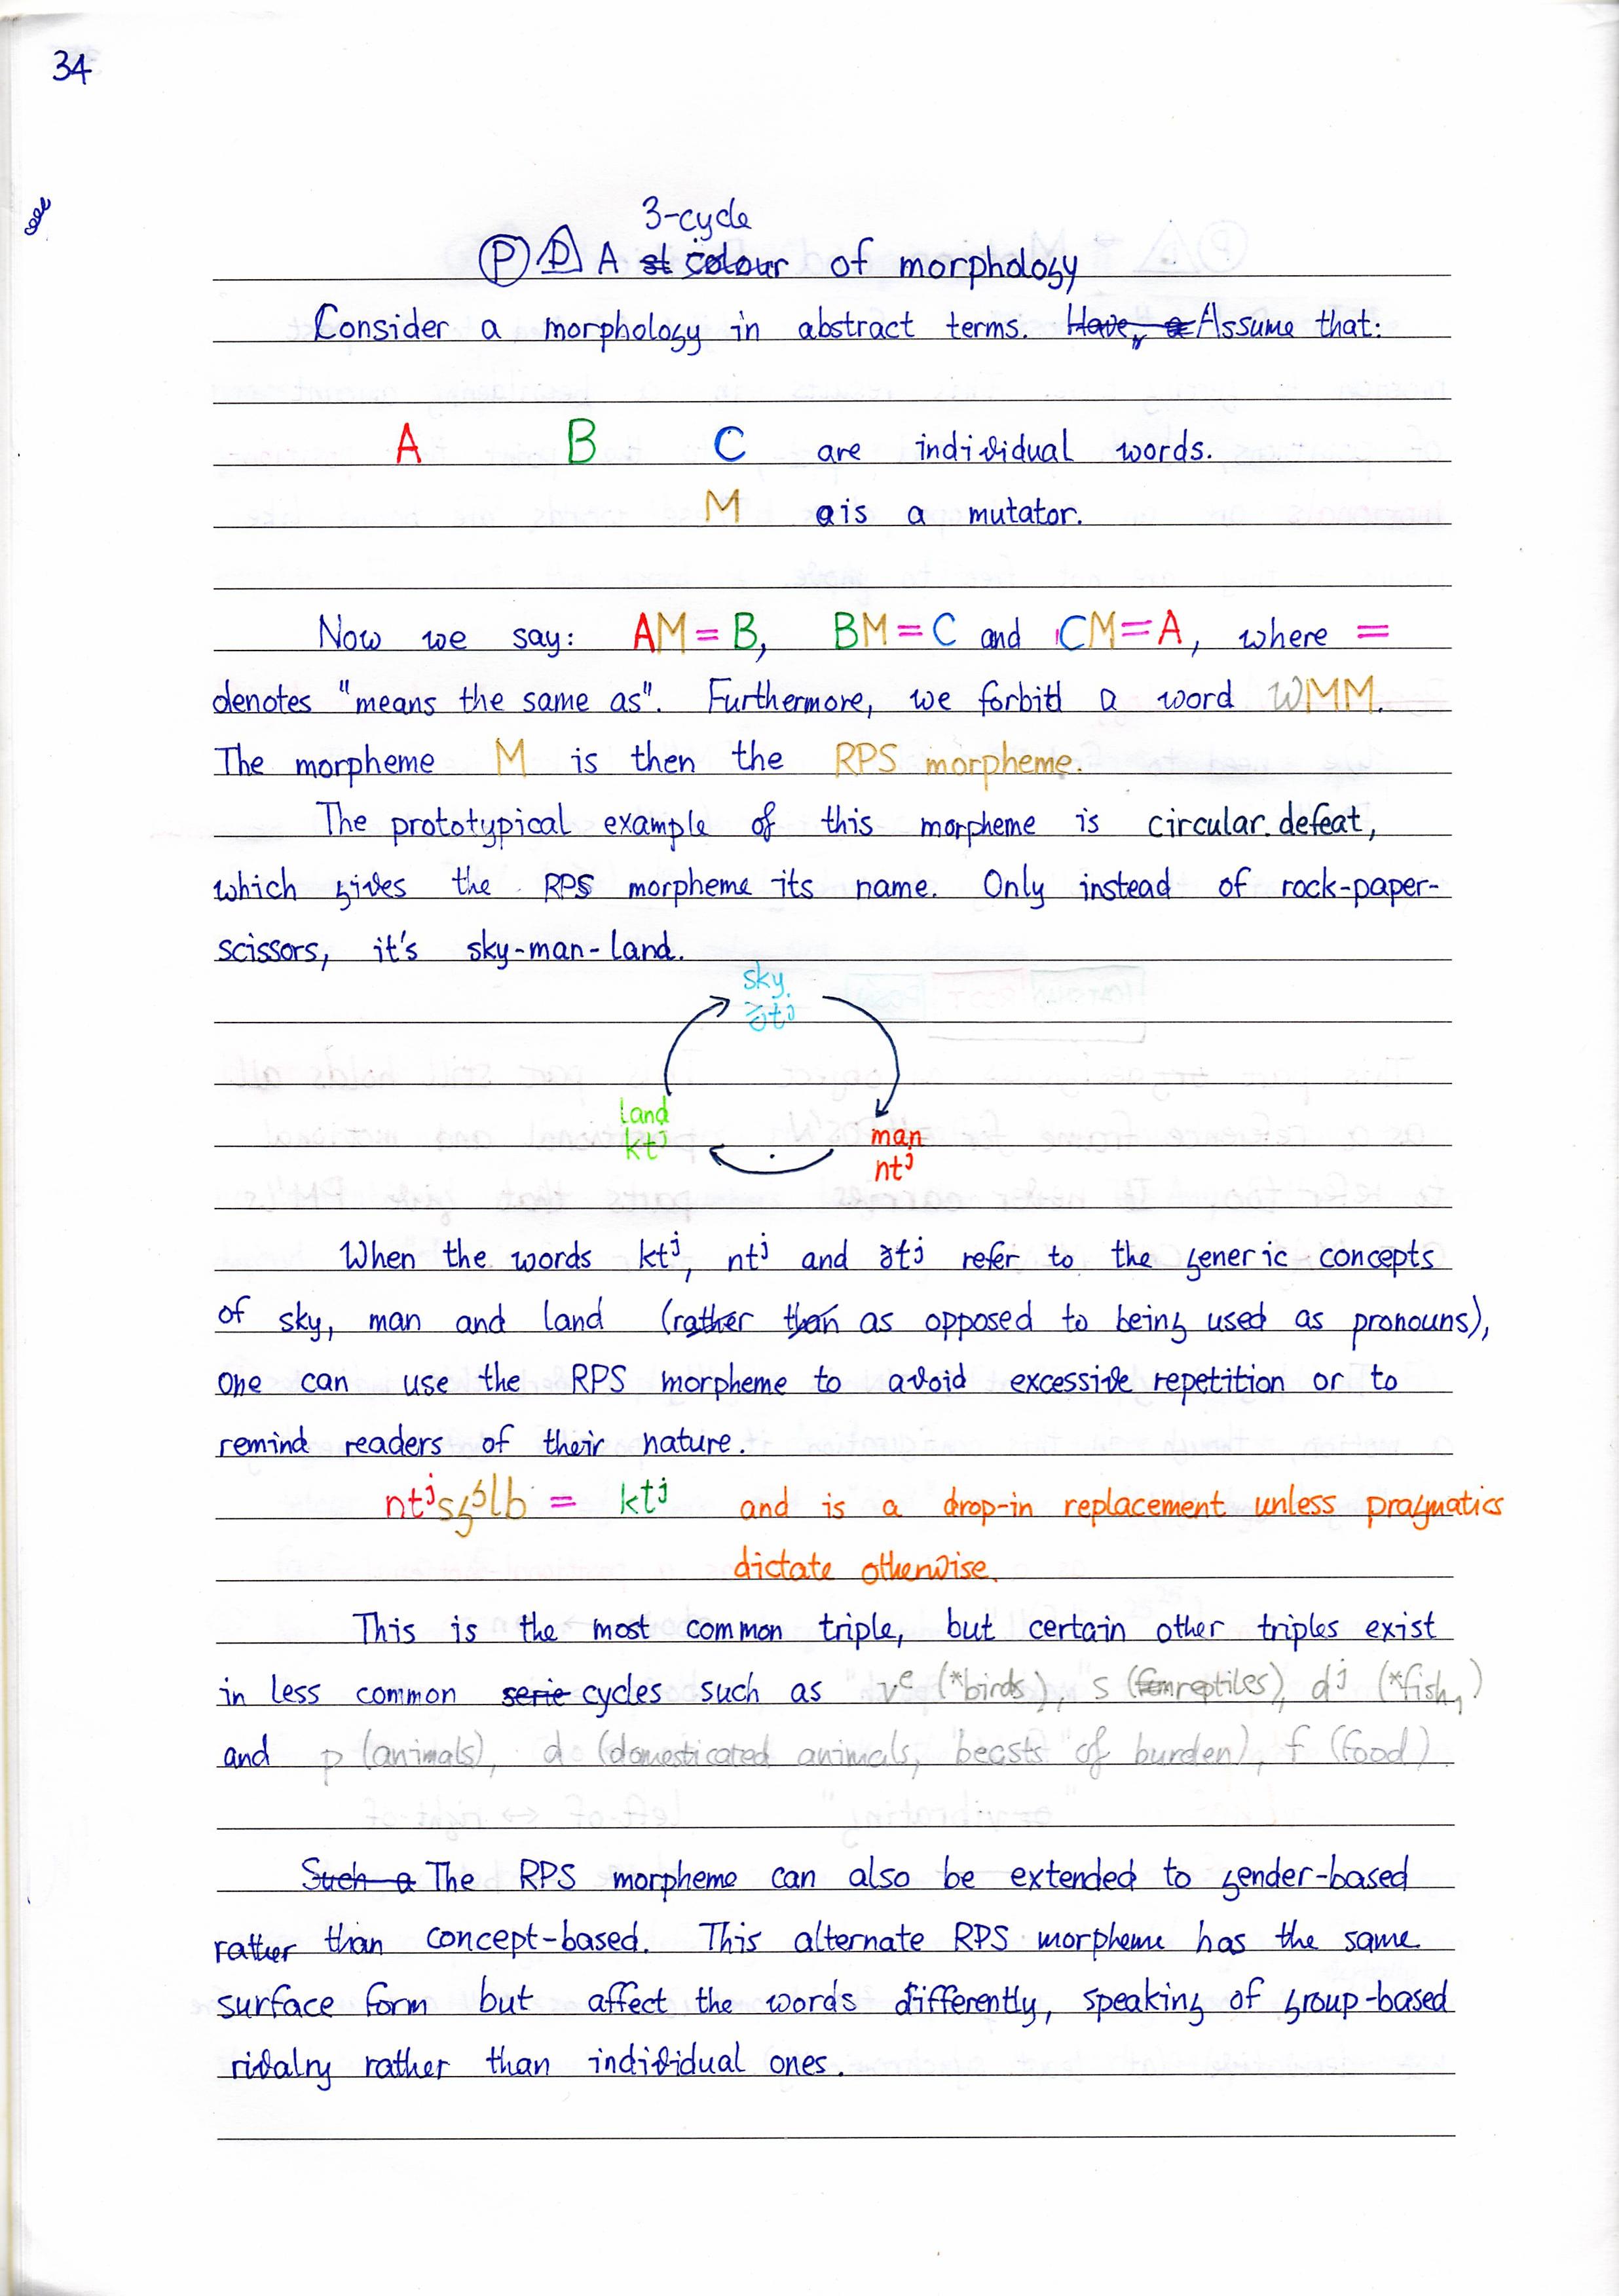 34
3-cycle
P D A st colour of morphology
Consider a morphology in abstract terms. Have, a Assume that:
A B C are individual words.
M is a mutator.
Now we say: AM = B, BM = C and CM = A, where =
denotes "means the same as". Furthermore, we forbid a word WMM.
The morpheme M is then the RPS morpheme.
The prototypical example of this morpheme is circular defeat,
which gives the RPS morpheme its name. Only instead of rock-paper-
scissors, it's sky-man-land.
sky
land
ktʲ
man
ntʲ
When the words ktʲ, ntʲ and refer to the generic concepts
of sky, man and land (rather than as opposed to being used as pronouns),
one can use the RPS morpheme to avoid excessive repetition or to
remind readers of their nature.
= ktʲ and is a drop-in replacement unless pragmatics
dictate otherwise.
This is the most common triple, but certain other triples exist
in less common serie cycles such as vᵉ (*birds), s (reptiles), dʲ (*fish,)
and p (animals), d (domesticated animals, beasts of burden), f (food).
Such a The RPS morpheme can also be extended to gender-based
rather than concept-based. This alternate RPS morpheme has the same
surface form but affect the words differently, speaking of group-based
rivalry rather than individual ones.